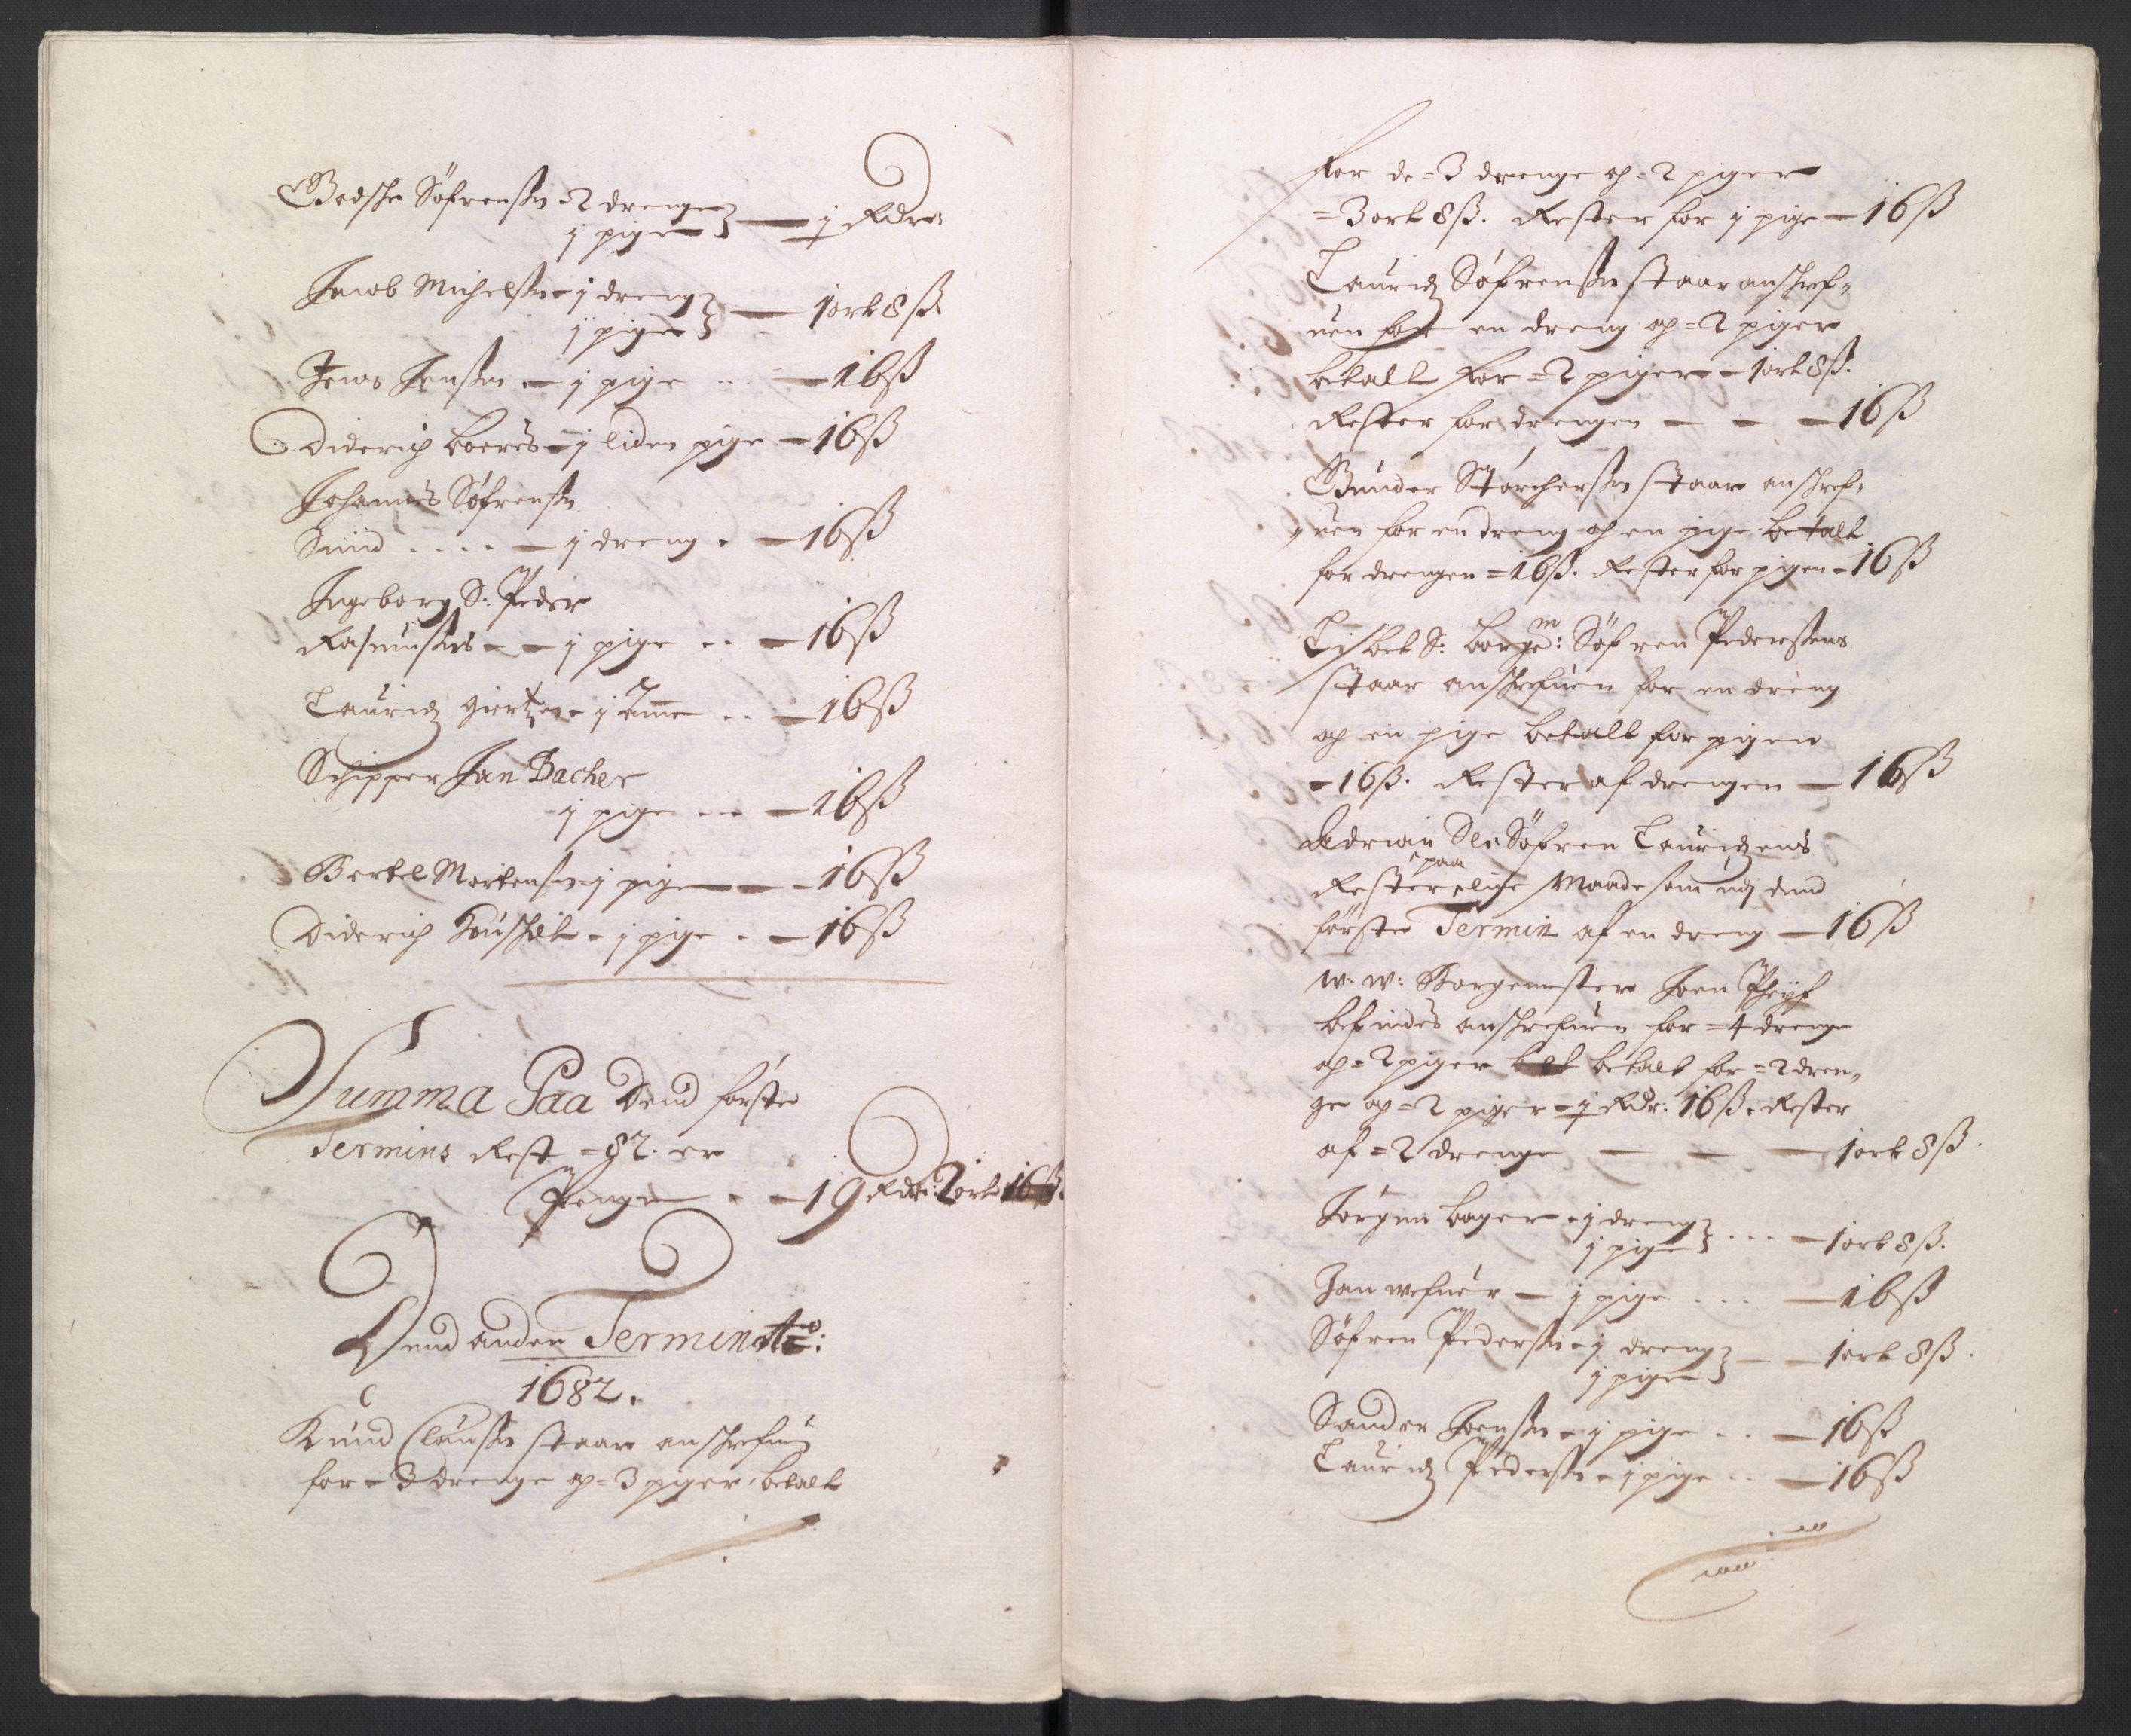 Godsche Söfrenßn - 2 drenge
j pige — j Rdr:
Jacob Michelßn - j dreng
j pige — 1 ort 8 ß
Jens Jenßn - j pige — 16 ß
Diderich boers - j liden pige — 16 ß
Johannes Söfrenßn
Smid .... — j dreng . — 16 ß
Ingeborg S: Peder
Rasmusßens — j pige .. — 16 ß
Lauridz giertzen - j Amme .. — 16 ß
Schipper Jan Bacher
j pige ... — 16 ß
Bertel Mortensßn - j pige — 16 ß
Diderich - j pige . — 16 ß
Summa Paa Dend förste
Termins Rest = 82. er
Penge . . — 19 Rdr: 2 ort 16 ß.
Dend anden Termin Ao:
1682.
Knud Claußn staar anschrefuen
for - 3 drenge og = 3 piger, betalt
for de = 3 drenge og = 2 piger
= 3 ort 8 ß. Rester for j pige — 16 ß
Lauridz Söfrenßn staar anschref„
uen for en dreng og = 2 piger
betalt for = 2 piger - 1 ort 8 ß.
Rester for drengen — — — 16 ß
Gunder Storchersßn staar anschref„
„uen for en dreng og en pige betalt
for drengen = 16 ß. Rester for pigen - 16 ß
Lisbet S: borgem: Söfren Pedersßens
staar anschrefuen for en dreng
og en pige betalt for pigen
- 16 ß. Rester af drengen — 16 ß
Adrian Sl: Söfren Lauridzens
Rester paa lige Maade som udj dend
förste Termin af en dreng — 16 ß
W: W: Borgemester Joen
befindes anschrefuen for = 4 drenge
og = 2 piger betalt for = 2 dren„
ge og = 2 piger = j Rdr: 16 ß. Rester
af = 2 drenge — — — 1 ort 8 ß.
Jörgen bager - j dreng
j pige ... — 1 ort 8 ß.
Jan wefuer — j pige ... — 16 ß
Söfren Pedersßn - j dreng
j pige — — 1 ort 8 ß.
Sander Joenßn - j pige .. — 16 ß
Lauridz Pedersßn - j pige .. — 16 ß